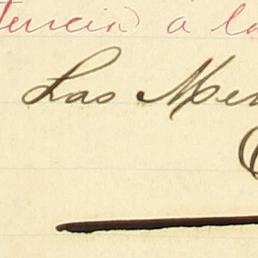 tencia á la
Las Mer